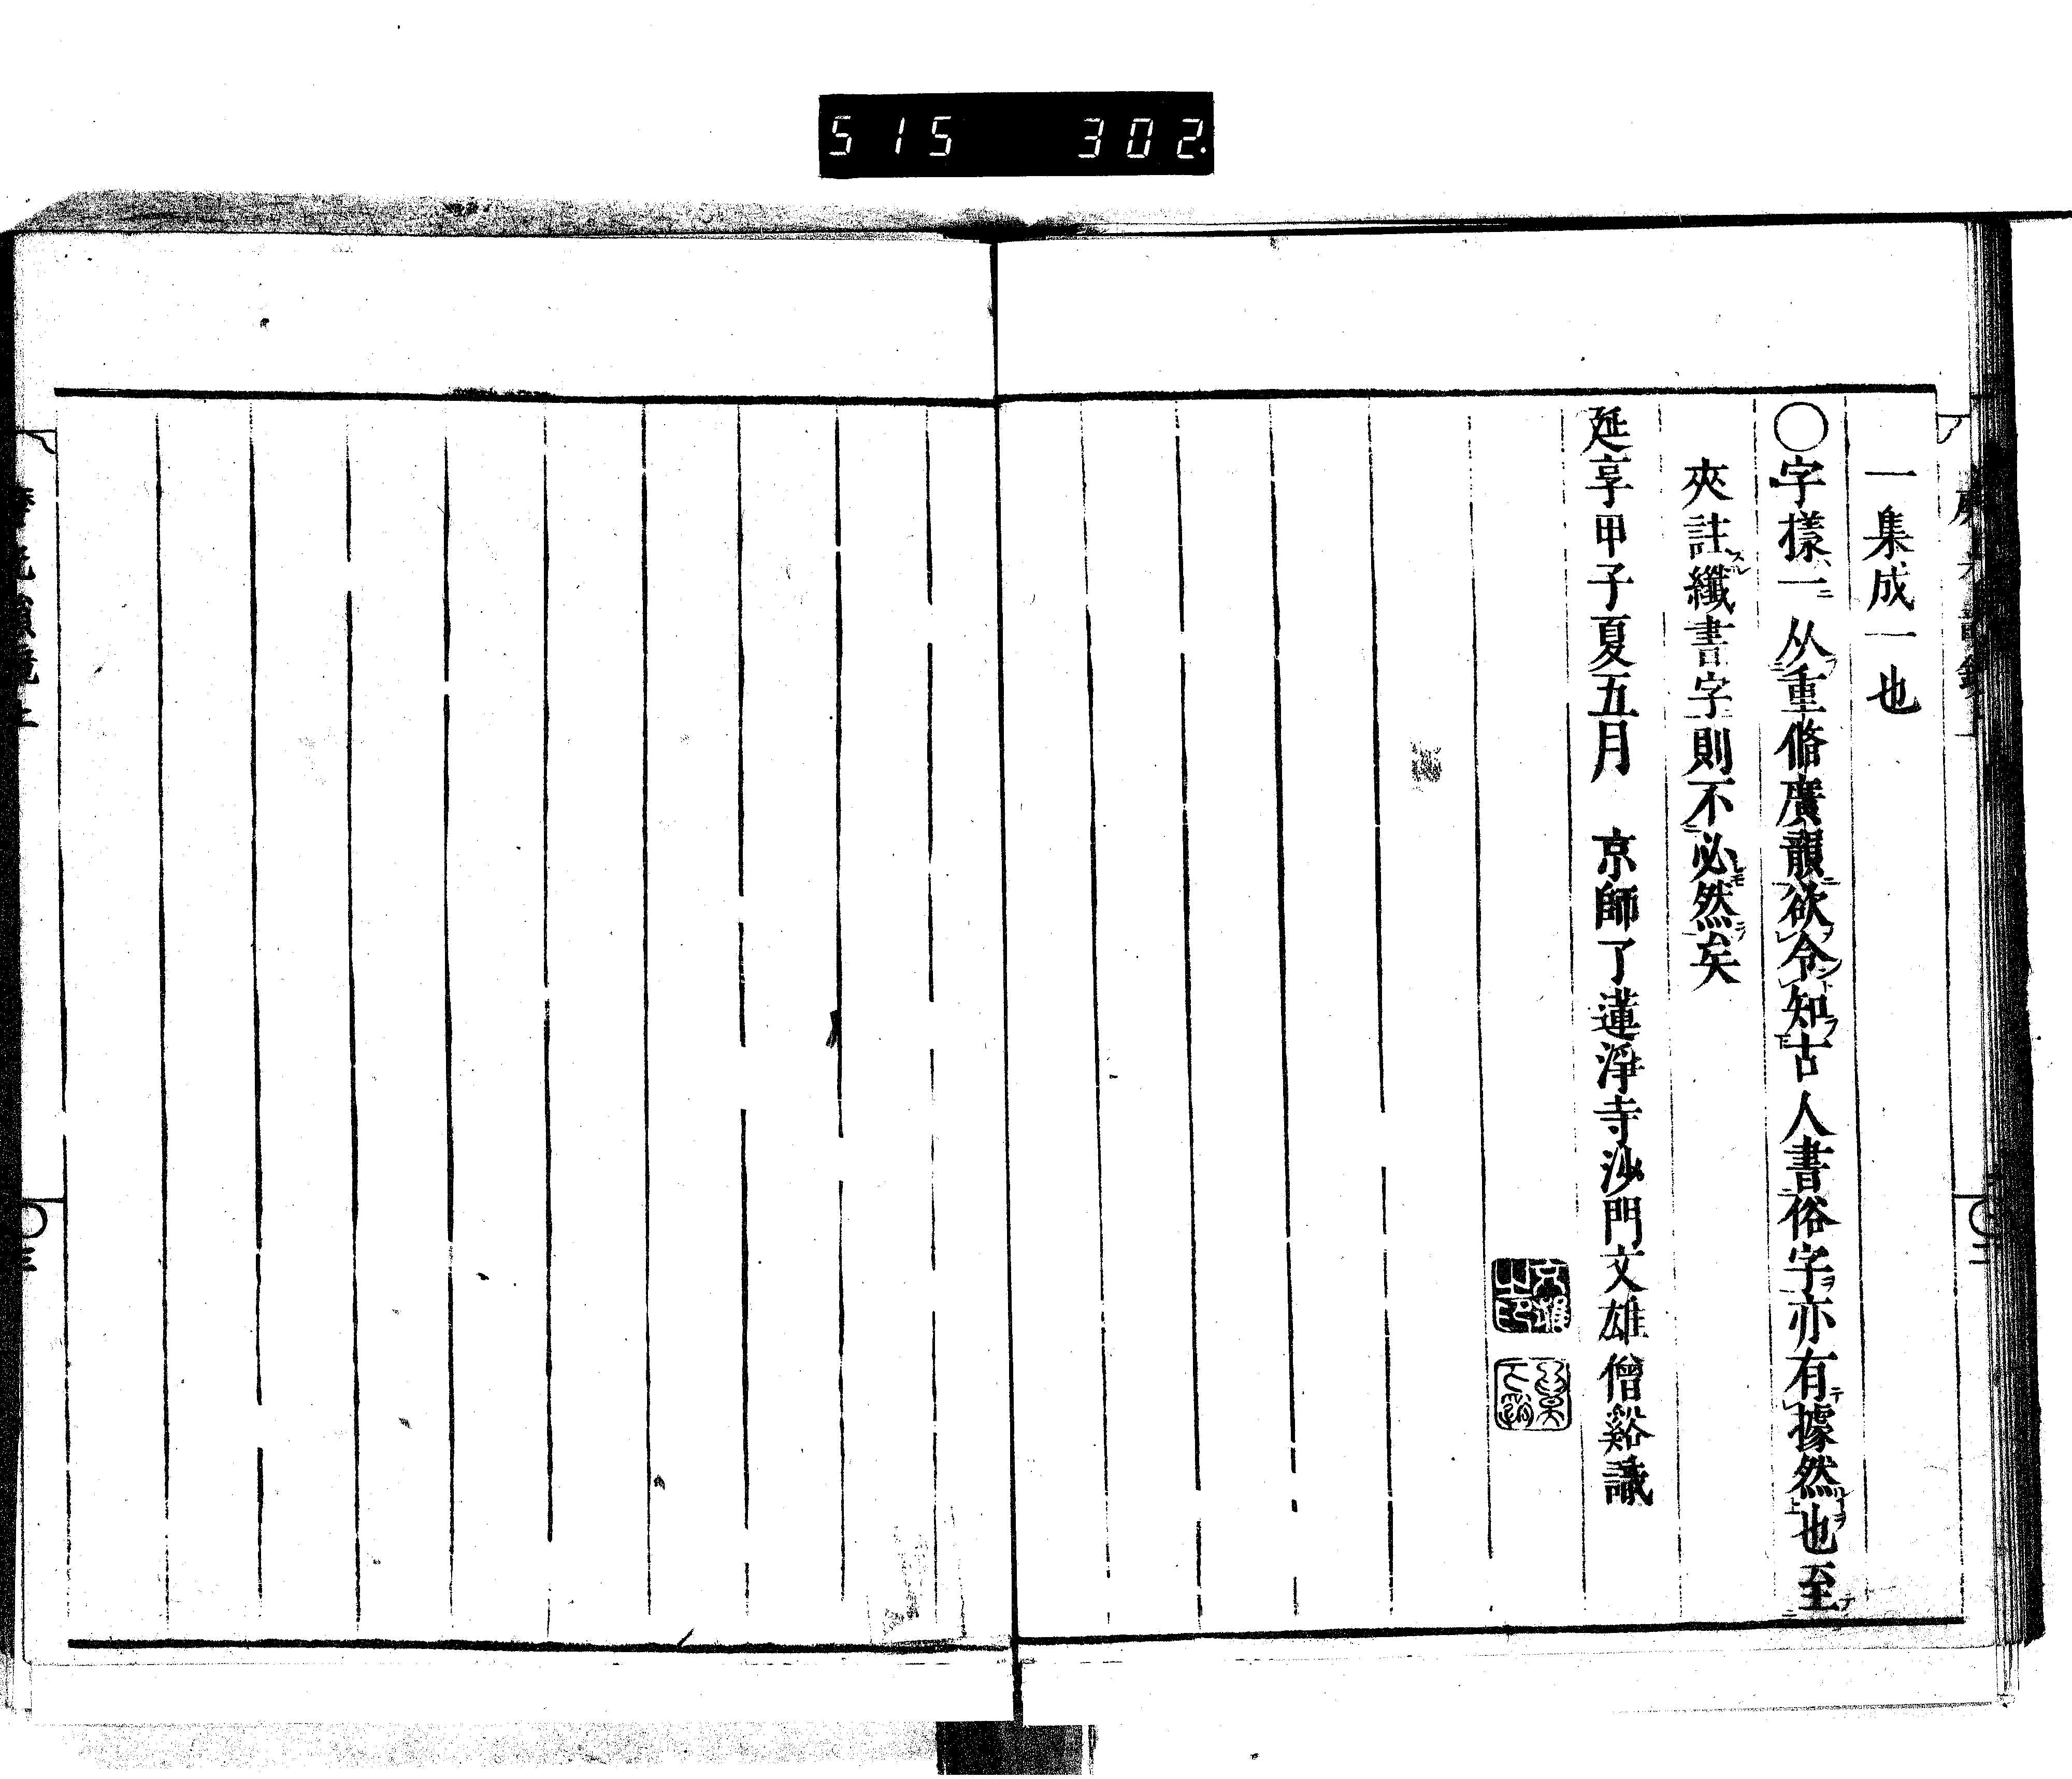 515 302.
一集成一也
〇字樣一从重脩廣韻欲令知古人書俗字亦有據然也至
夾註纖書字則不必然矣
延享甲子夏五月 京師了蓮淨寺沙門文雄僧谿識